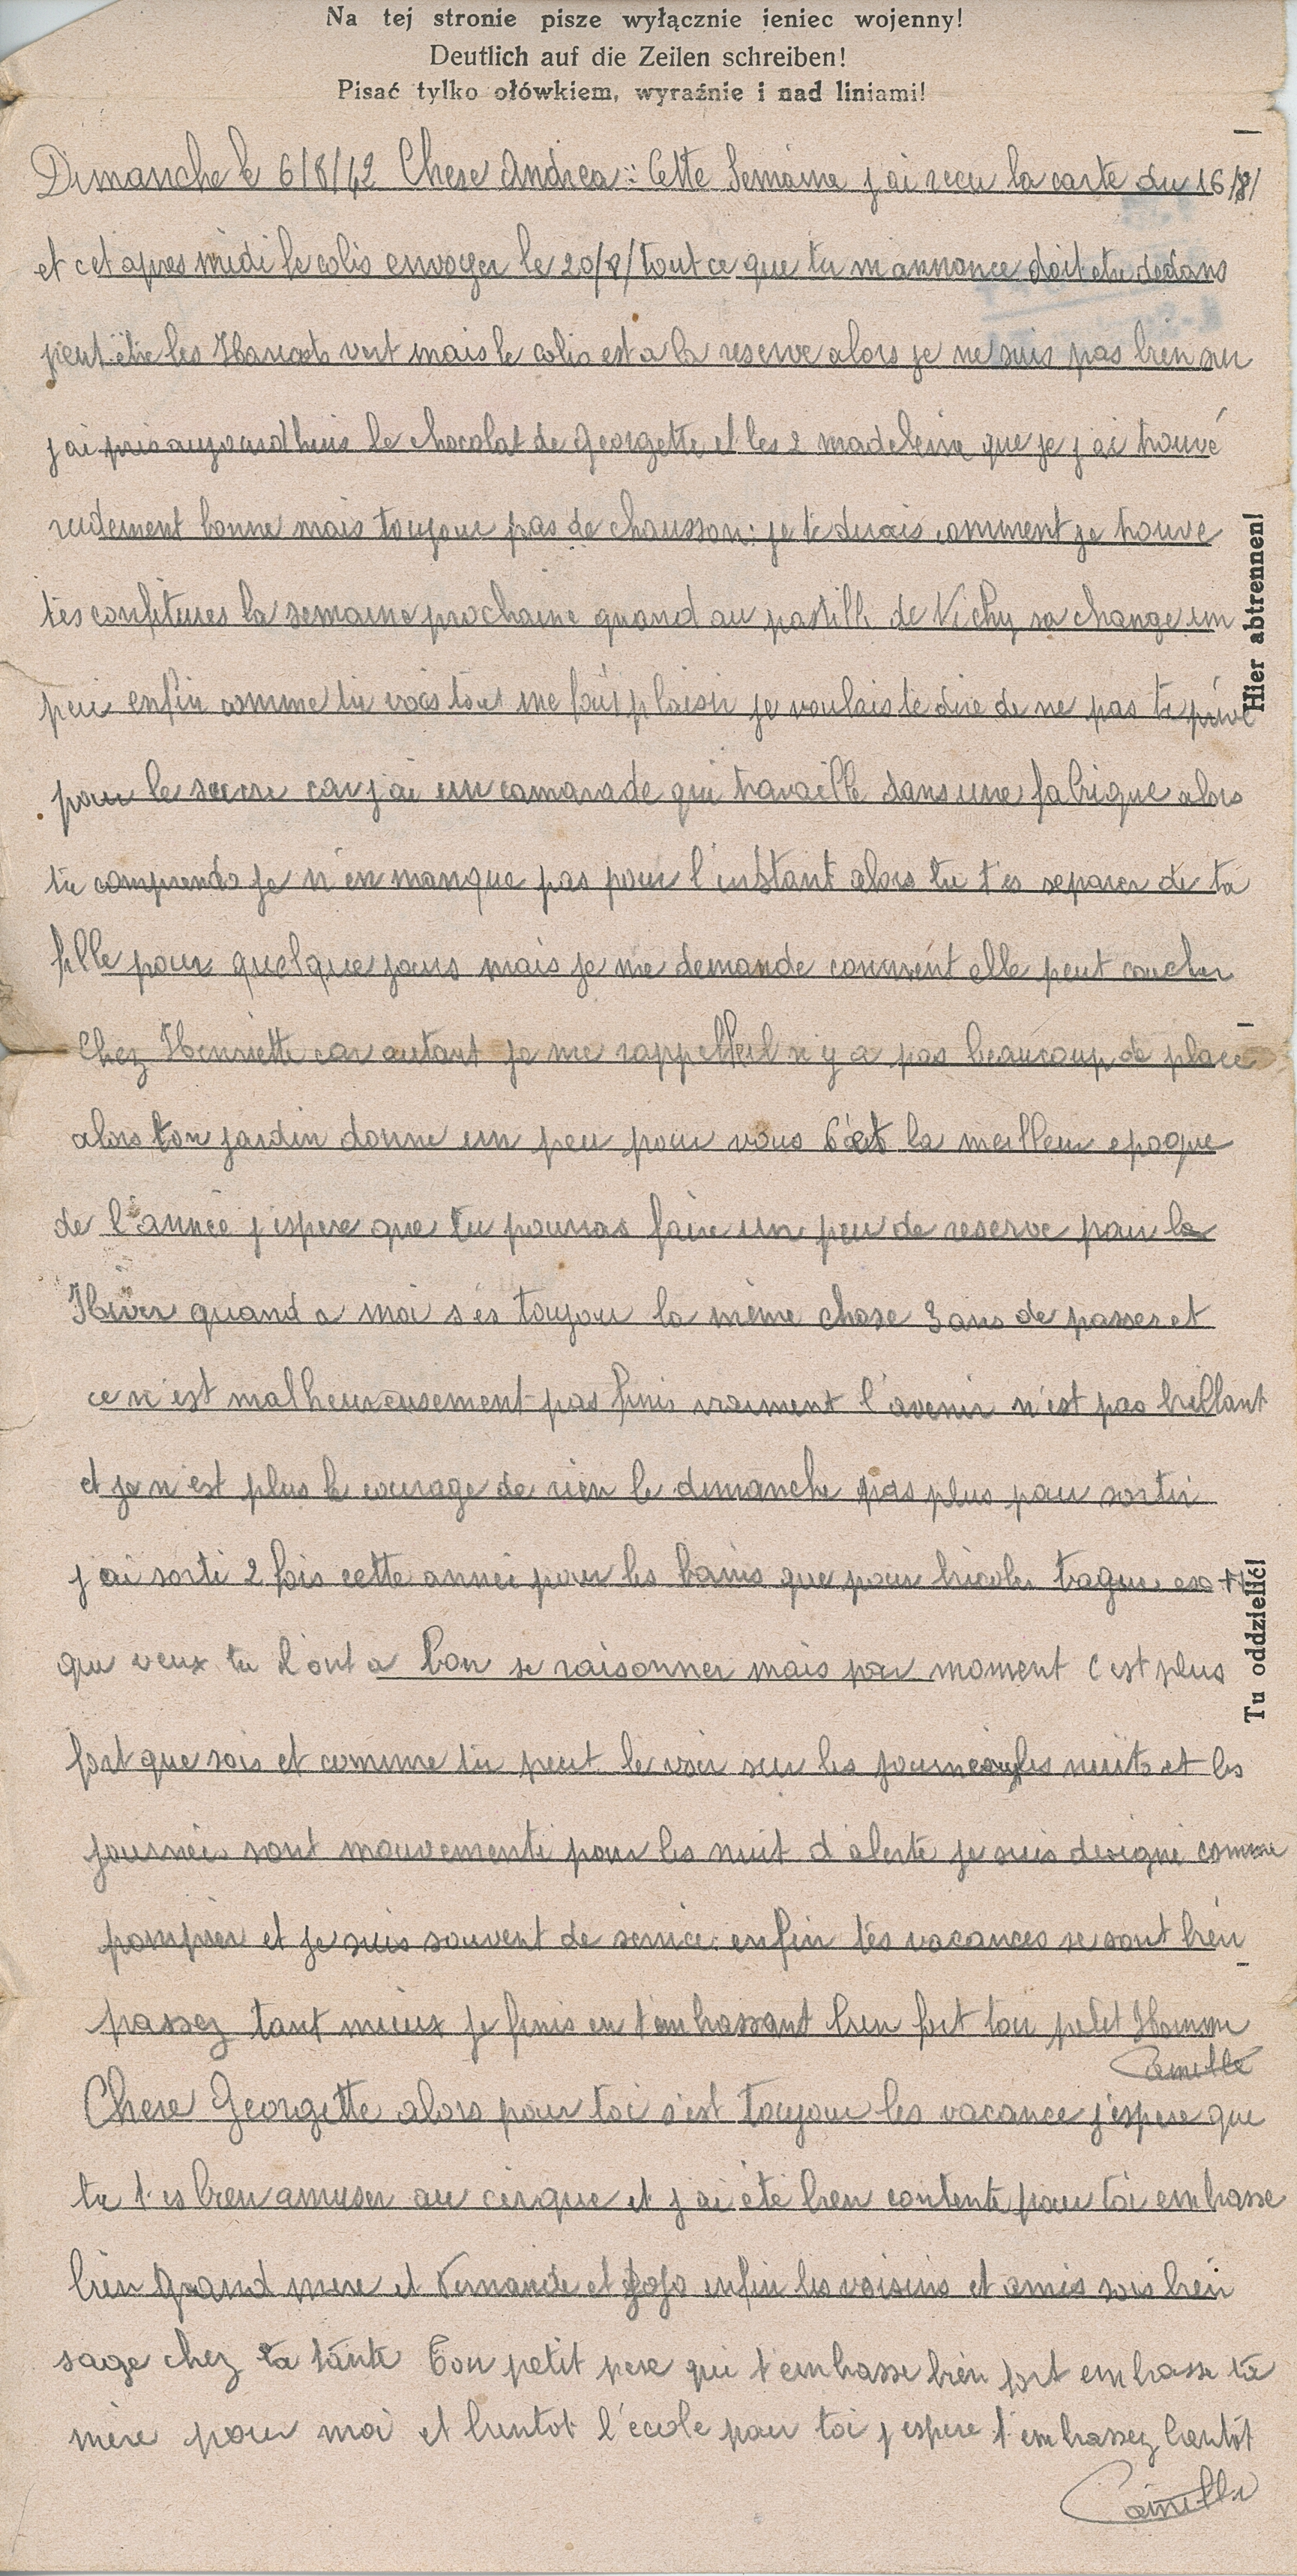 Na tej stronie pisze wyłącznie jeniec wojenny!
Deutlich auf die Zeilen schreiben!
Pisać tylko ołówkiem, wyraźnie i nad liniami!
Dimanche le 6/8/42 Chere Andrea : Cette Semaine j ai recu la carte du 16/8/
et cet apres midi le colis envoyer le 20/8/ tout ce que tu m annonce doit etre dedans
peut être les Haricots vert mais le colis est a la reserve alors je ne suis pas bien sur
j ai pris aujourd huis le chocolat de Georgette et les 2 madeleine que je j ai trouvé
rudement bonne mais toujour pas de chausson : je te dirais comment je trouve
tes confitures la semaine prochaine quand au pastille de Vichy sa change un
peu enfin comme tu vois tout me fait plaisir je voulais te dire de ne pas te privé
pour le sucre car j ai un camarade qui travaille dans une fabrique alors
tu comprends je n en manque pas pour l instant alors tu t es separer de ta
fille pour quelque jours mais je me demande comment elle peut coucher
Chez Henriette car autant je me rappelle il n y a pas beaucoup de place
alors ton jardin donne un peu pour vous C est la meilleur epoque
de l année j espere que tu pourras faire un peu de reserve pour la
Hiver quand a moi s es toujour la même chose 3 ans de passer et
ce n est malheureusement pas finis vraiment l avenir n est pas brillant
et je n est plus le courage de rien le dimanche pas plus pour sortir
j ai sorti 2 fois cette année pour les bains que pour bricoler bague
que veux tu l ont a bon se raisonner mais par moment c est plus
fort que sois et comme tu peut le voir sur les journeaux les nuits et les
journées sont mouvementé pour les nuit d alerte je suis designé comme
pompier et je suis souvent de service. enfin tes vacances se sont bien
passez tant mieux je finis en t embrassant bien fort ton petit Homme
Camille
Chere Georgette alors pour toi s est toujour les vacance j espere que
tu t es bien amuser au cirque et j ai été bien contente pour toi embrasse
bien grand mere et Fernande et Jojo enfin les voisins et amies sois bien
sage chez ta tante Ton petit pere qui t embrasse bien fort embrasse ta
mère pour moi et bientot l école pour toi j espere t embrassez bientôt
Camille
Hier abtrennen!
Tu oddzielić!